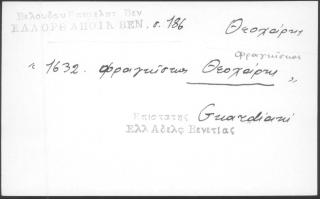 Βελουδου Κωνσταντ. Βεν
ΕΛΛΟΡΘ ΑΠΟΙΚ ΒΕΝ, σ. 186 Θεοχάρης
Φραγκίσκος
1632. Φραγκίσκος Θεοχάρης
Επιστάτης Guardiani
Ελλ Αδελφ Βενετίας